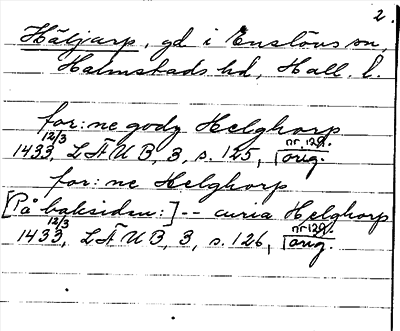 2.
Häljarp, gd i Enslövs sn,
Halmstads hd, Hall. l.
for: ne godz Helghorp
12/3 nr 129.
1433, LÄUB, 3, s. 125, orig.
for: ne Helghorp
[På baksidan:] -- curia Helghorp
12/3 nr 129.
1433, LÄUB, 3, s. 126, orig.